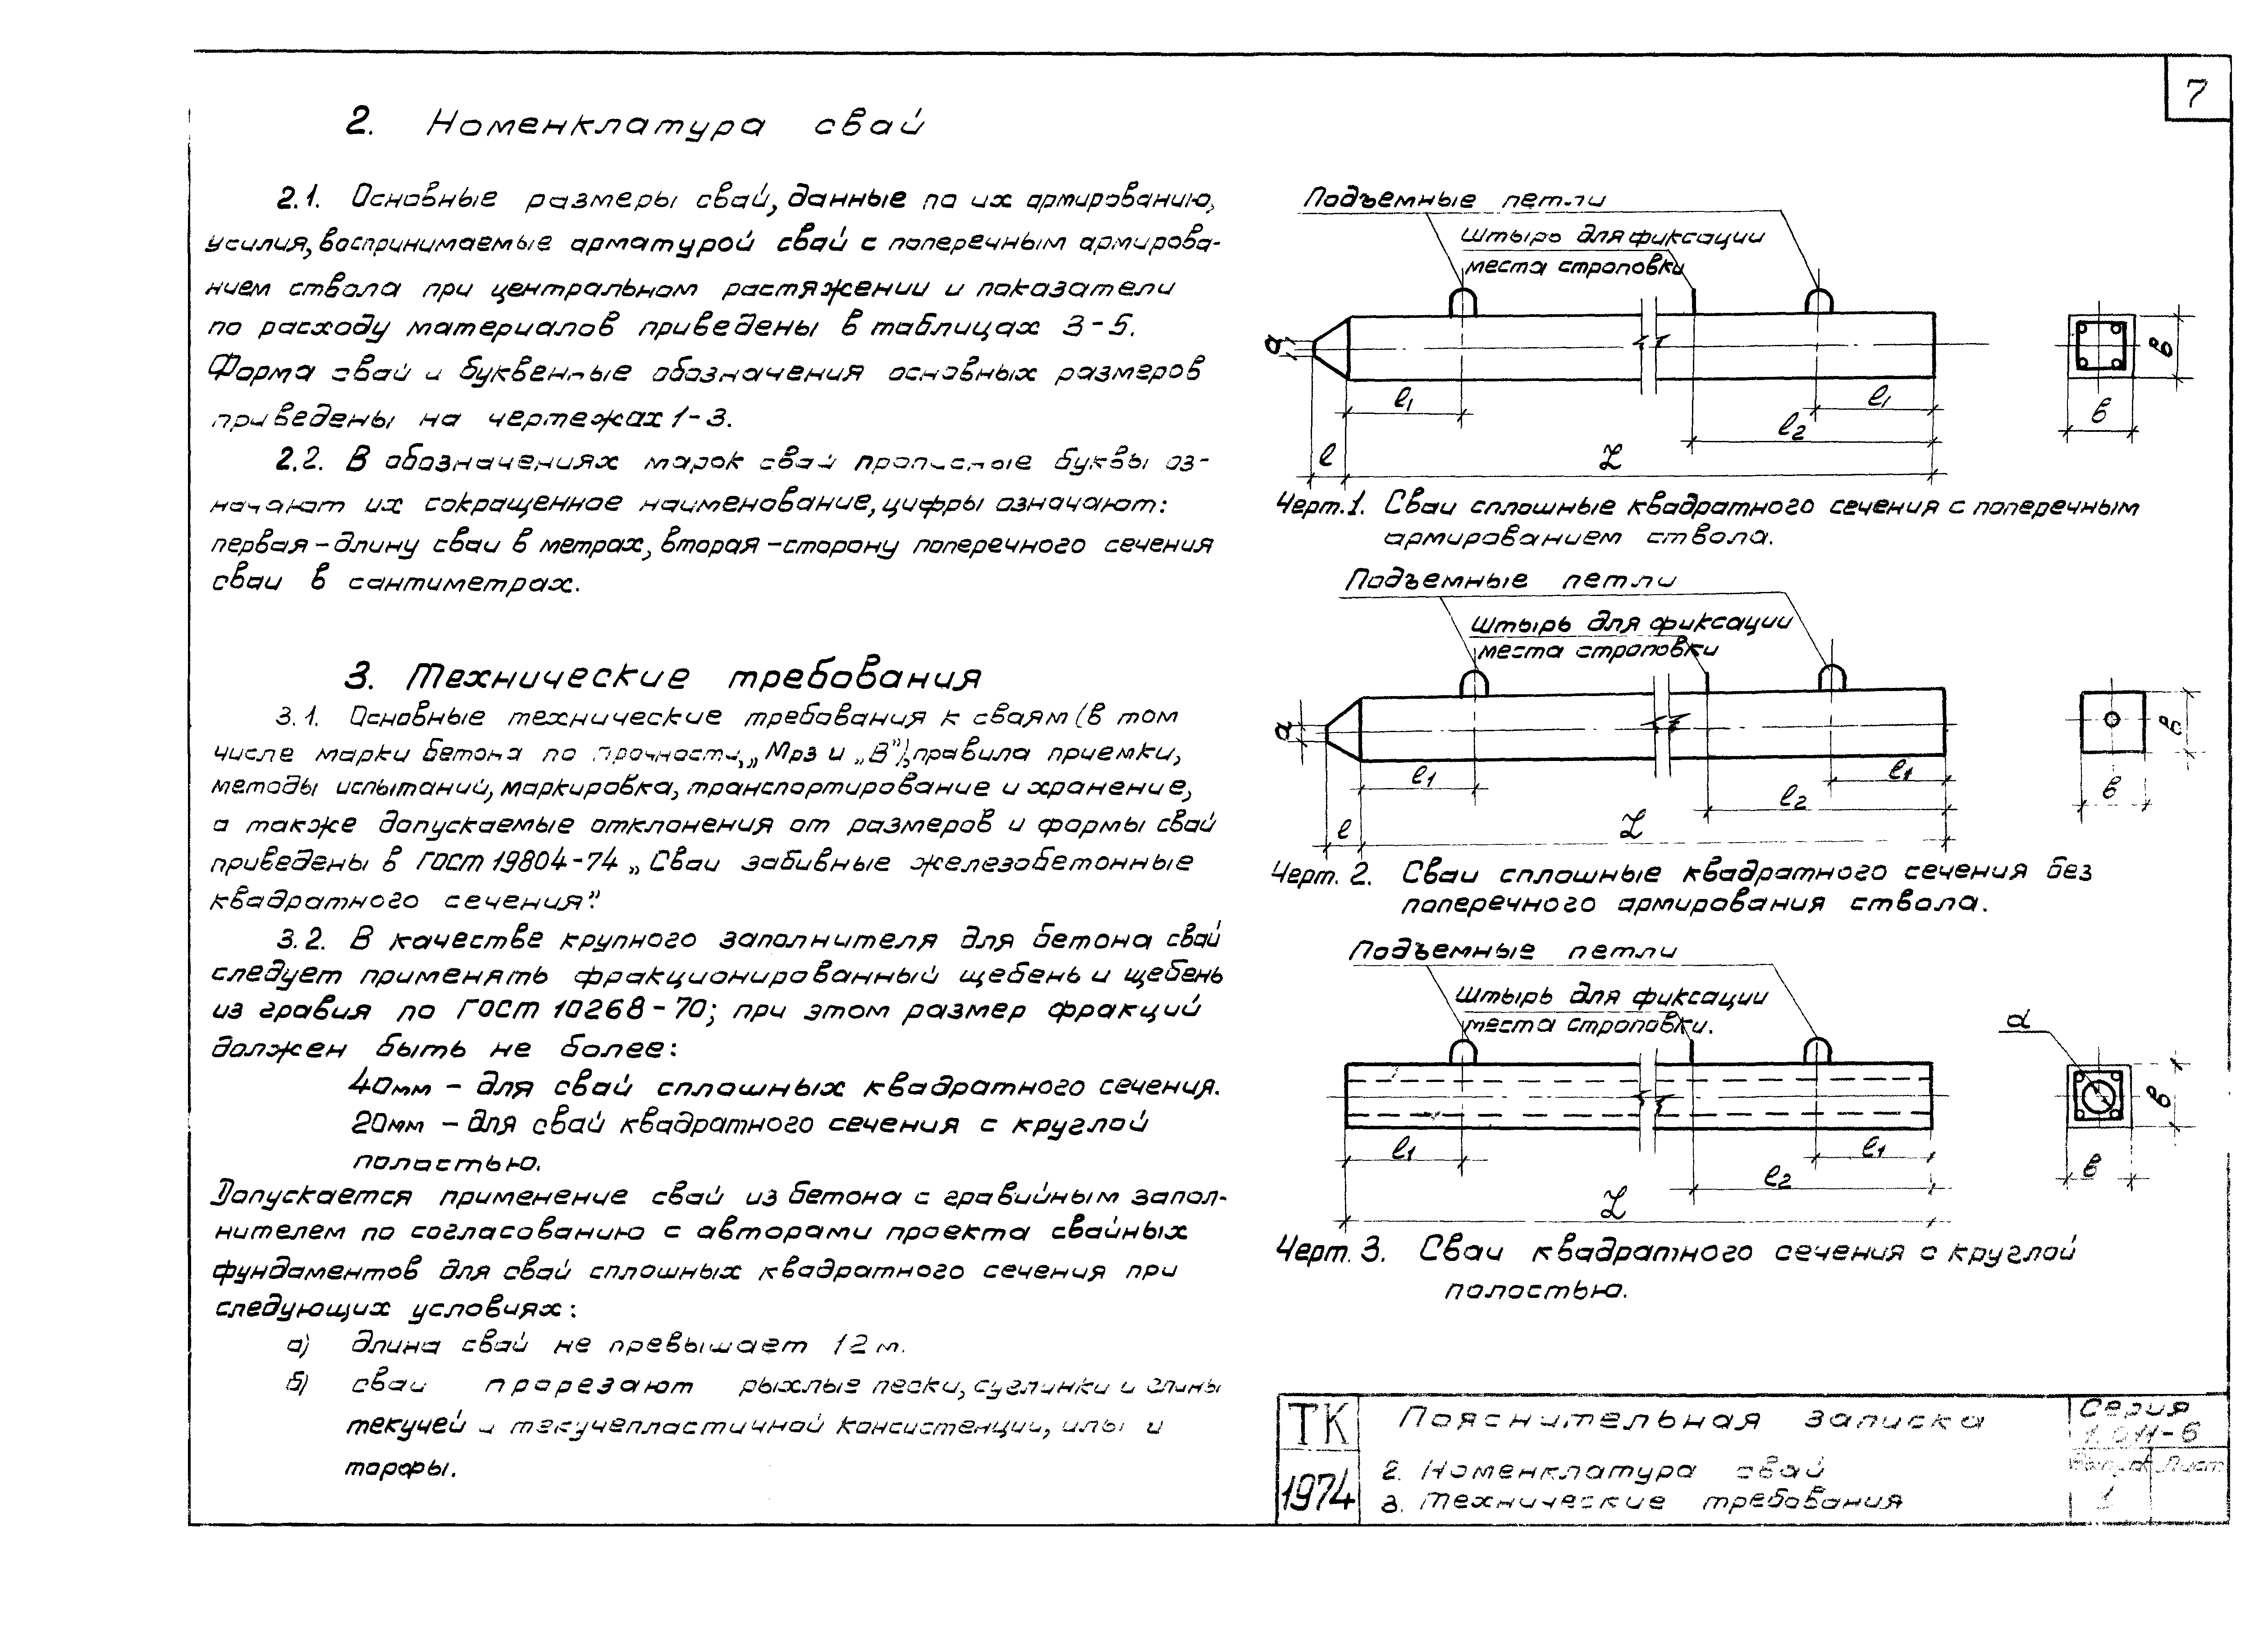 7
2. Номенклатура свай
2.1. Основные размеры свай, данные по их армированию,
усилия, воспринимаемые арматурой свай с поперечным армирова-
нием ствола при центральном растяжении и показатели
по расходу материалов приведены в таблицах 3-5.
Форма свай и буквенные обозначения основных размеров
приведены на чертежах 1-3.
2.2. В обозначениях марок свай прописные буквы оз-
начают их сокращенное наименование, цифры означают:
первая – длину сваи в метрах, вторая – сторону поперечного сечения
сваи в сантиметрах.
3. Технические требования
3.1. Основные технические требования к сваям (в том
числе марки бетона по прочности, „Мрз и „В"), правила приемки,
методы испытаний, маркировка, транспортирование и хранение,
а также допускаемые отклонения от размеров и формы свай
приведены в ГОСТ 19804-74 „Сваи забивные железобетонные
квадратного сечения".
3.2. В качестве крупного заполнителя для бетона свай
следует применять фракционированный щебень и щебень
из гравия по ГОСТ 10268-70; при этом размер фракций
должен быть не более:
40мм – для свай сплошных квадратного сечения.
20мм – для свай квадратного сечения с круглой
полостью.
Допускается применение свай из бетона с гравийным запол-
нителем по согласованию с авторами проекта свайных
фундаментов для свай сплошных квадратного сечения при
следующих условиях:
а) длина свай не превышает 12 м.
б) сваи прорезают рыхлые пески, суглинки и глины
текучей и текучепластичной консистенции, илы и
торфы.
Подъемные петли
Штырь для фиксации
места строповки
а
l1
l1
l2
l
L
в
в
Черт.1. Сваи сплошные квадратного сечения с поперечным
армированием ствола.
Подъемные петли
Штырь для фиксации
места строповки
а
l1
l1
l2
l
L
в
в
Черт. 2. Сваи сплошные квадратного сечения без
поперечного армирования ствола.
Подъемные петли
Штырь для фиксации
места строповки.
d
l1
l1
l2
L
в
в
Черт. 3. Сваи квадратного сечения с круглой
полостью.
ТК
1974
Пояснительная записка
2. Номенклатура свай
3. Технические требования
Серия
1.011-6
Выпуск Лист
1